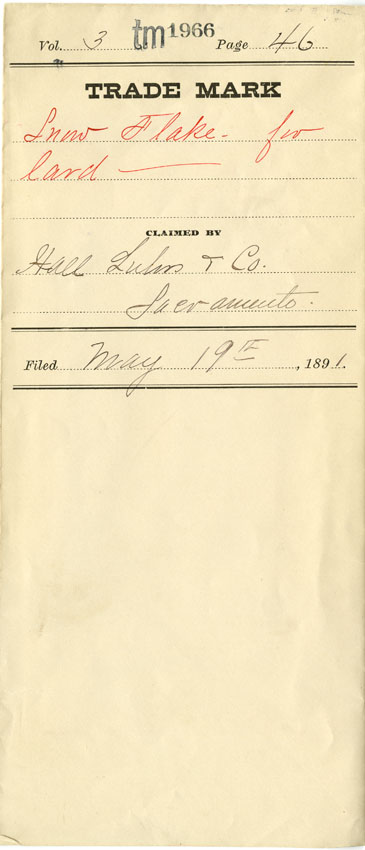 Vol. 3 tm 1966 Page 46
TRADE MARK
Snow Flake - for
lard —
CLAIMED BY
Hall Luhrs & Co.
Sacramento.
Filed May 19th, 1891.